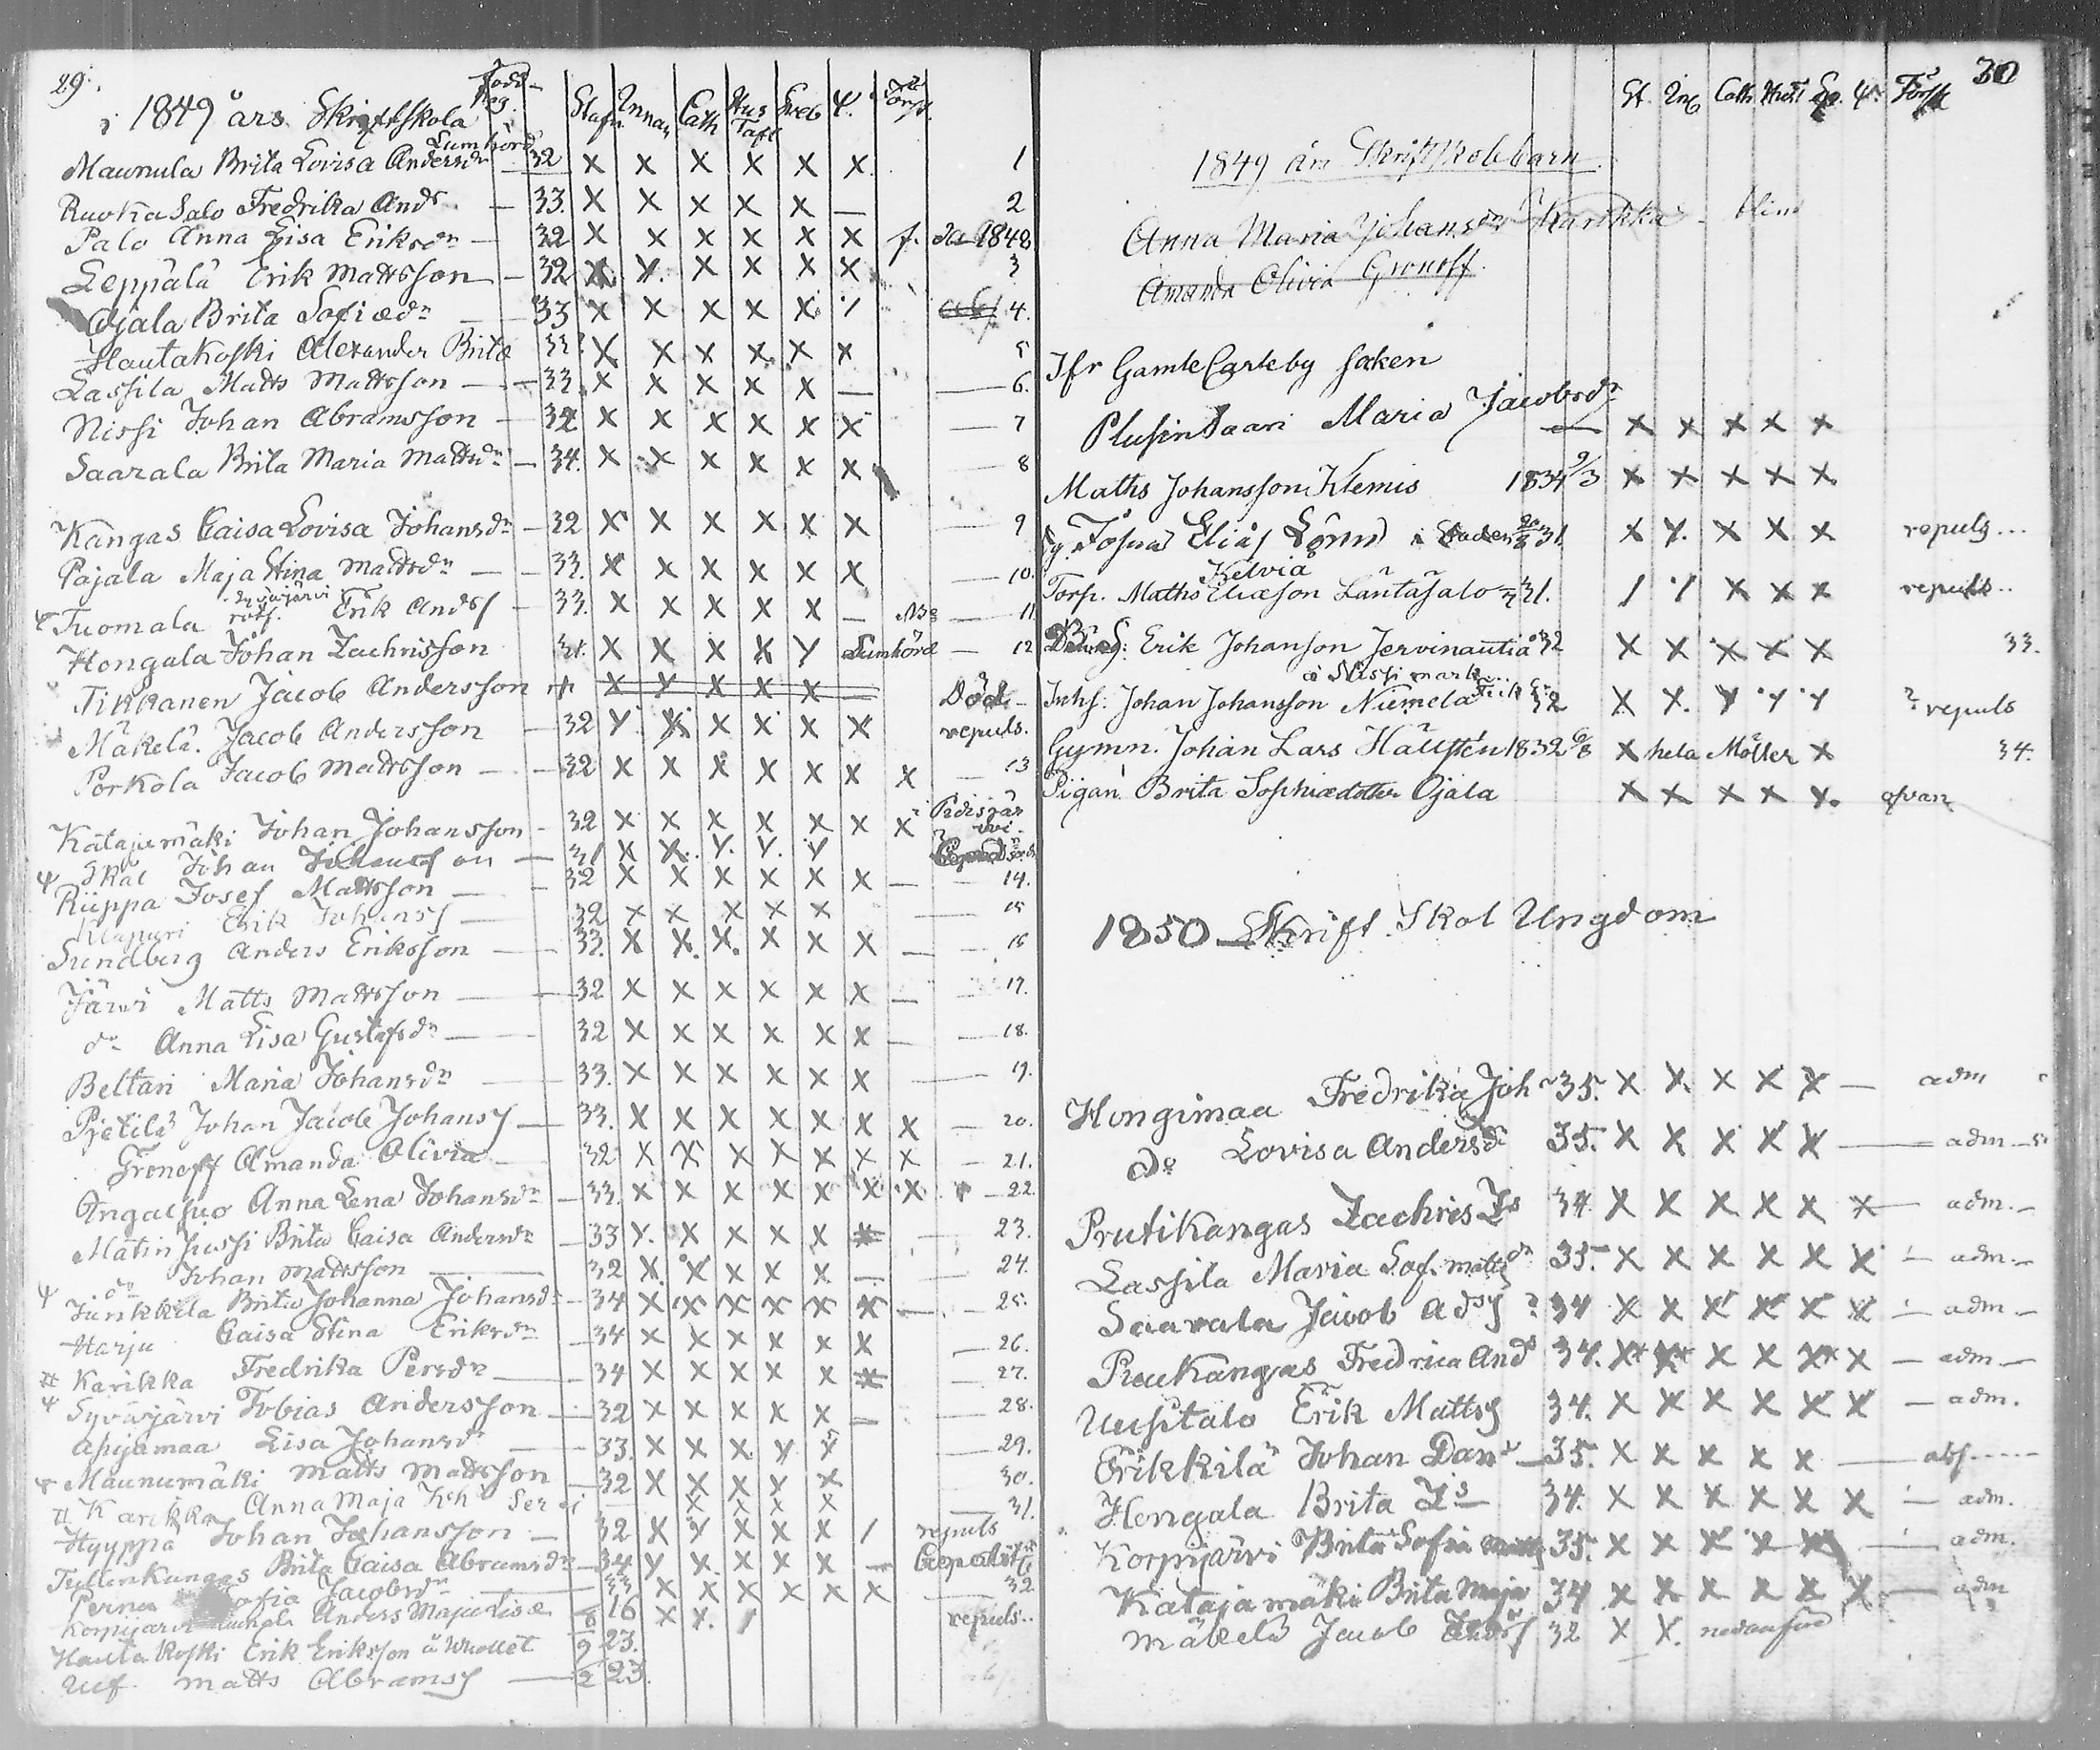 29.
i 1849 års Skriftskola
Stafn Innan Cath Hus Tafl Sveb Ψ. Först.
Lumhörd
Maunula Brita Lovisa Andersdr 32 X X X X X X. 1
Ruokasalo Fredrika Ands — 33. X X X X X — 2
Palo Anna Lisa Eriksdr — 32 X X X X X X f. 1848
Leppälä Erik Mattsson — 32 X X X X X X 3
Ojala Brita Sofiædr 33 X X X X X / 4.
Hautakoski Alexander Britæ 33 X X X X X X 5
Lassila Matts Mattsson — 33. X X X X X — 6.
Nissi Johan Abramsson — 32 X X X X X X — 7
Saarala Brita Maria Mattsdr — 34. X X X X X X — 8
Kangas Caisa Lovisa Johansdr — 32 X X X X X X — 9
Pajala Maja Stina Mattsdr — 33. X X X X X X — 10.
Tuomala Erik Andss — 33. X X X X X — 11
Hongala Johan Zachrisson 31. X X X X X Lumhörd — 12
Tikkanen Jacob Andersson X X X X X Död
Mäkelä Jacob Andersson — 32 X X X X X X repuls.
Porkola Jacob Mattsson — 32 X X X X X X X — 13
Katajamäki Johan Johansson — 32 X X X X X X X
Ψ Johan 31 X X X X X
Riippa Josef Mattsson — 32 X X X X X X — 14.
Erik Johanss — 32 X X X X X — 15
Sundberg Anders Eriksson — 33. X X X X X X — 16
Järvi Matts Mattsson — 32 X X X X X X — 17.
do Anna Lisa Gustafsdr — 32 X X X X X X — 18.
Beltari Maria Johansdr — 33. X X X X X X — 19.
Pjetilä Johan Jacob Johanss — 33. X X X X X X X — 20.
Gronoff Amanda Olivia 32 X X X X X X X — 21.
Anna Lena Johansdr — 33. X X X X X X X — 22.
Matinjussi Brita Caisa Andersdr — 33 X X X X X X — 23.
do Johan Mattsson — 32 X X X X X — 24.
Ψ Junkkila Brita Johanna Johansdr — 34 X X X X X X — 25.
Harju Caisa Stina Eriksdr — 34 X X X X X X — 26.
# Karikka Fredrika Persdr — 34 X X X X X X — 27.
Ψ Syväjärvi Tobias Andersson — 32 X X X X X — 28.
Lisa Johansdr — 33. X X X X X — 29.
Maunumäki Matts Mattsson — 32 X X X X X 30.
# Karikka Anna Maja Joh X X X X — 31.
Hyyppä Johan Johansson — 32 X X X X X / repuls
Brita Caisa Abramsdr — 34 X X X X X —
Jacobsdr 33 X X X X X X 32
Anders Maja Lisæ 6 16 X X / repuls..
Hautakoski Erik Eriksson 9 23.
Matts Abramss — 2 23.
30
St. In Cath Hust Sv. Ψ Först
1849 års Skriftskolebarn
Anna Maria Johansdr Karikka — blind
Amanda Olivia Gronoff.
Ifr GamleCarleby socken
Maria Jacobsdr — X X X X X
Maths Johansson Klemis 1834 9/3 X X X X X
Josua Elias Lönn 31. X X X X X repuls...
Kelviå
Torp. Maths Eliæson Läntäsalo 31. / / X X X repuls..
Erik Johanson Jervinautio 32 X X X X X 33.
Inhs. Johan Johansson Niemelä 32 X X. X X X ? repuls
Gymn. Johan Lars Hällsten 1832 6/8 X hela Möller X 34.
Pigan Brita Sophiædotter Ojala X X X X X. ofvan
1850 Skrift Skol Ungdom
Hongimaa Fredrika Joh 35. X X. X X X — adm
do Lovisa Andersdr 35. X X X X X — adm
Prutikangas Zachris Zs 34. X X X X X X — adm.
Lassila Maria Sof. Mattsdr 35. X X X X X X — adm.
Saarala Jacob Adss ? 34 X X X X X X — adm
Raukangas Fredrica Ands 34. X X X X X X — adm
Uusitalo Erik Mattss 34. X X X X X X — adm.
Erikkilä Johan Dan — 35. X X X X X — abs.....
Hongala Brita Zs 34. X X X X X X — adm.
Korpijärvi Brita Sofia 35. X X X X X — adm.
Katajamäki Brita Maja 34 X X X X X X — adm
Mäkelä Jacob Andss 32 X X. nedanföre